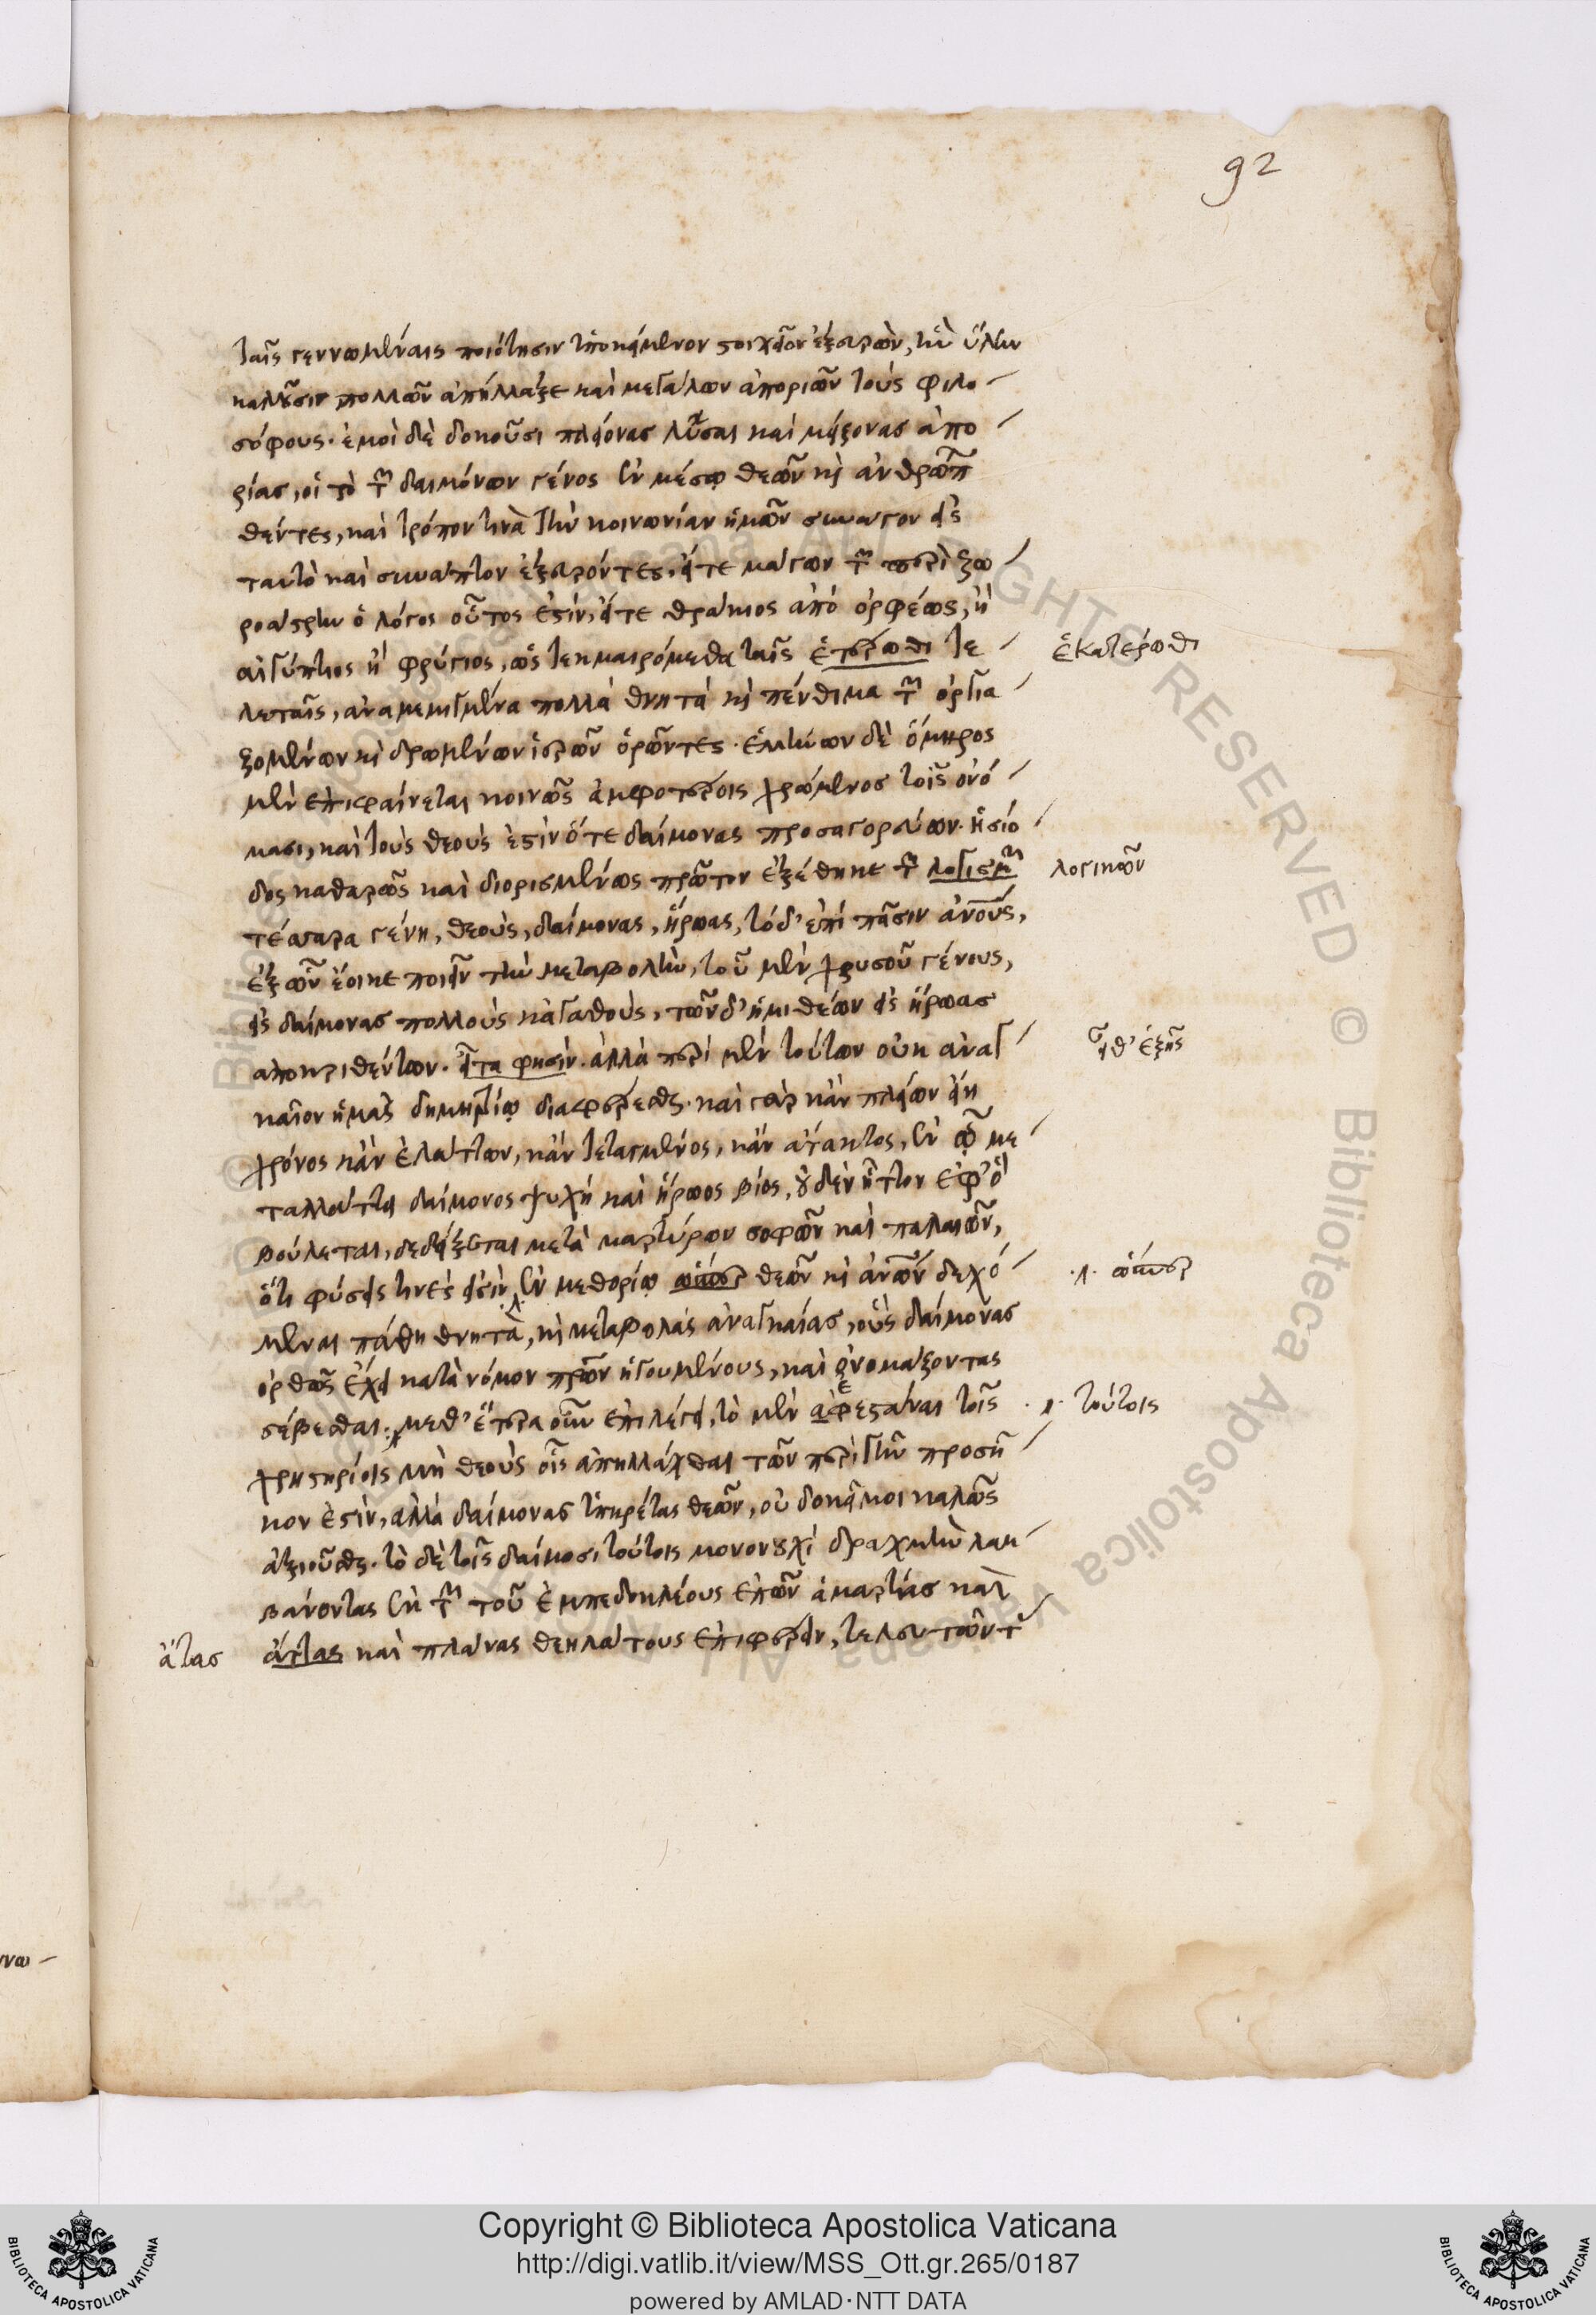 92
ταῖς γεννωμέναις ποιότησιν ὑποκείμενον στοιχεῖον ἐξευρὼν, ἣν ὕλην
καλοῦσιν πολλῶν ἀπήλλαξε καὶ μεγάλων ἀποριῶν τοὺς φιλο
σόφους. ἐμοὶ δὲ δοκοῦσι πλείονας λῦσαι καὶ μείζονας ἀπο
ρίας, οἱ τὸ τῶν δαιμόνων γένος ἐν μέσῳ θεῶν κὶ ἀνθρώπ
θέντες, καὶ τρόπον τινὰ τὴν κοινωνίαν ἡμῶν συνάγον εἰς
ταυτὸ καὶ συνάπτον ἐξευρόντες, εἴτε μάγων τῶν περὶ ζω
ροάστρην ὁ λόγος οὗτος ἐστὶν, εἴτε θράκιος ἀπὸ ὀρφέως, ἢ
αἰγύπτιος ἢ φρύγιος, ὡς τεκμαιρόμεθα ταῖς ἑτέρωθι τε
ἑκατέρωθι
λεταῖς, ἀναμεμιγμένα πολλὰ θνητὰ κὶ πένθιμα τῶν ὀργια
ζομένων κὶ δρωμένων ἱερῶν ὁρῶντες. ἑλλήνων δὲ ὅμηρος
μὲν ἐπικραίνεται κοινῶς ἀμφοτέροις χρώμενος τοῖς ὀνό
μασι, καὶ τοὺς θεοὺς ἐστὶν ὅτε δαίμονας προσαγορεύων. ἡσίο
δος καθαρῶς καὶ διορισμένως πρῶτον ἐξέθηκε τῶν λογισμῶν
λογικῶν
τέσσαρα γένη, θεοὺς, δαίμονας, ἥρωας, τὸ δ' ἐπὶ πᾶσιν ἀνους,
ἐξ ὧν ἔοικε ποιεῖν τὴν μεταβολὴν, τοῦ μὲν χρυσοῦ γένους,
εἰς δαίμονας πολλοὺς κἀγαθοὺς, τῶν δ' ἡμιθέων εἰς ἥρωας
ἀποκριθέντων. εἶτα φησὶν. ἀλλὰ περὶ μὲν τούτων οὐκ ἀναγ
εἶθ' ἑξῆς
καῖον ἡμᾶς δημητρίῳ διαφέρεσθαι. καὶ γὰρ κἂν πλείων εἴη
χρόνος κἂν ἐλάττων, κἂν τεταγμένος, κἂν ἄτακτος, ἐν ᾧ με
ταλλάττει δαίμονος ψυχὴ καὶ ἥρωος βίος, οὐδὲν ἧττον ἐφ' ὃ
βούλεται, δεδείξεται μετὰ μαρτύρων σοφῶν καὶ παλαιῶν,
ὅτι φύσεις τινές εἰσιν, ἐν μεθορίῳ ὥσπερ θεῶν κὶ ἀνων δεχό
.λ. ὥσπερ
μεναι πάθη θνητὰ, κὶ μεταβολὰς ἀναγκαίας, οὓς δαίμονας
ὀρθῶς ἔχει κατὰ νόμον πρων ἡγουμένους, καὶ ὀνομάζοντας
σέβεσθαι. μεθ' ἕτερα οὖν ἐπιλέγει, τὸ μὲν ἀφεστάναι τοῖς
.λ. τούτοις
χρηστηρίοις μὴ θεοὺς οἷς ἀπηλλάχθαι τῶν περὶ γῆν προσῆ
κον ἐστὶν, ἀλλὰ δαίμονας ὑπηρέτας θεῶν, οὐ δοκεῖ μοι καλῶς
ἀξιοῦσθαι. τὸ δὲ τοῖς δαίμοσι τούτοις μονονουχὶ δραχμὴν λαμ
βάνοντας ἐκ τῶν τοῦ ἐμπεδοκλέους ἐπῶν ἁμαρτίας καὶ
ἄτας
αἰτίας καὶ πλάνας θεηλάτους ἐπιφέρειν, τελευτῶντ